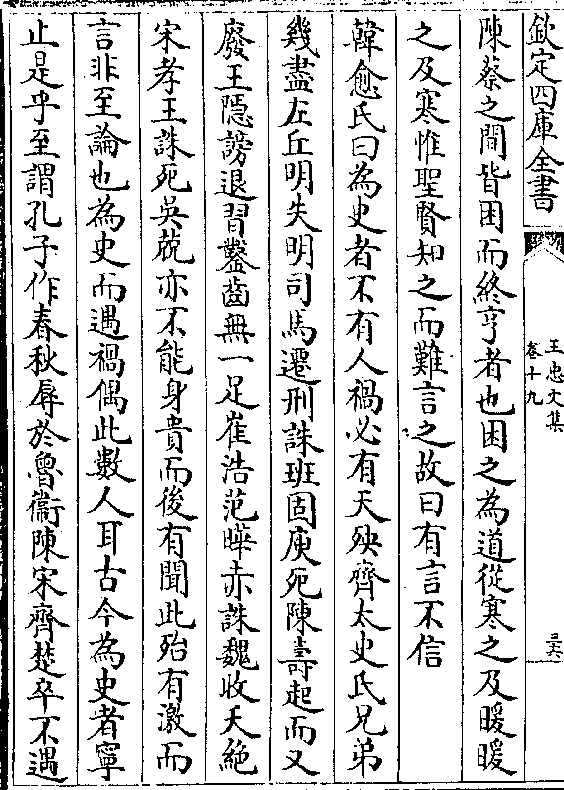 欽定四庫全書
王忠文集
卷十九
三六
陳蔡之間皆困而終亨者也困之為道從寒之及暖暖
之及寒惟聖賢知之而難言之故曰有言不信
韓愈氏曰為史者不有人禍必有天殃齊太史氏兄弟
幾盡左丘明失明司馬遷刑誅班固庾死陳壽起而又
廢王隱謗退習鑿齒無一足崔浩范曄赤誅魏收夭絶
宋孝王誅死吳兢亦不能身貴而後有聞此殆有激而
言非至論也為史而遇禍偶此數人耳古今為史者寧
止是乎至謂孔子作春秋辱於魯衛陳宋齊楚卒不遇